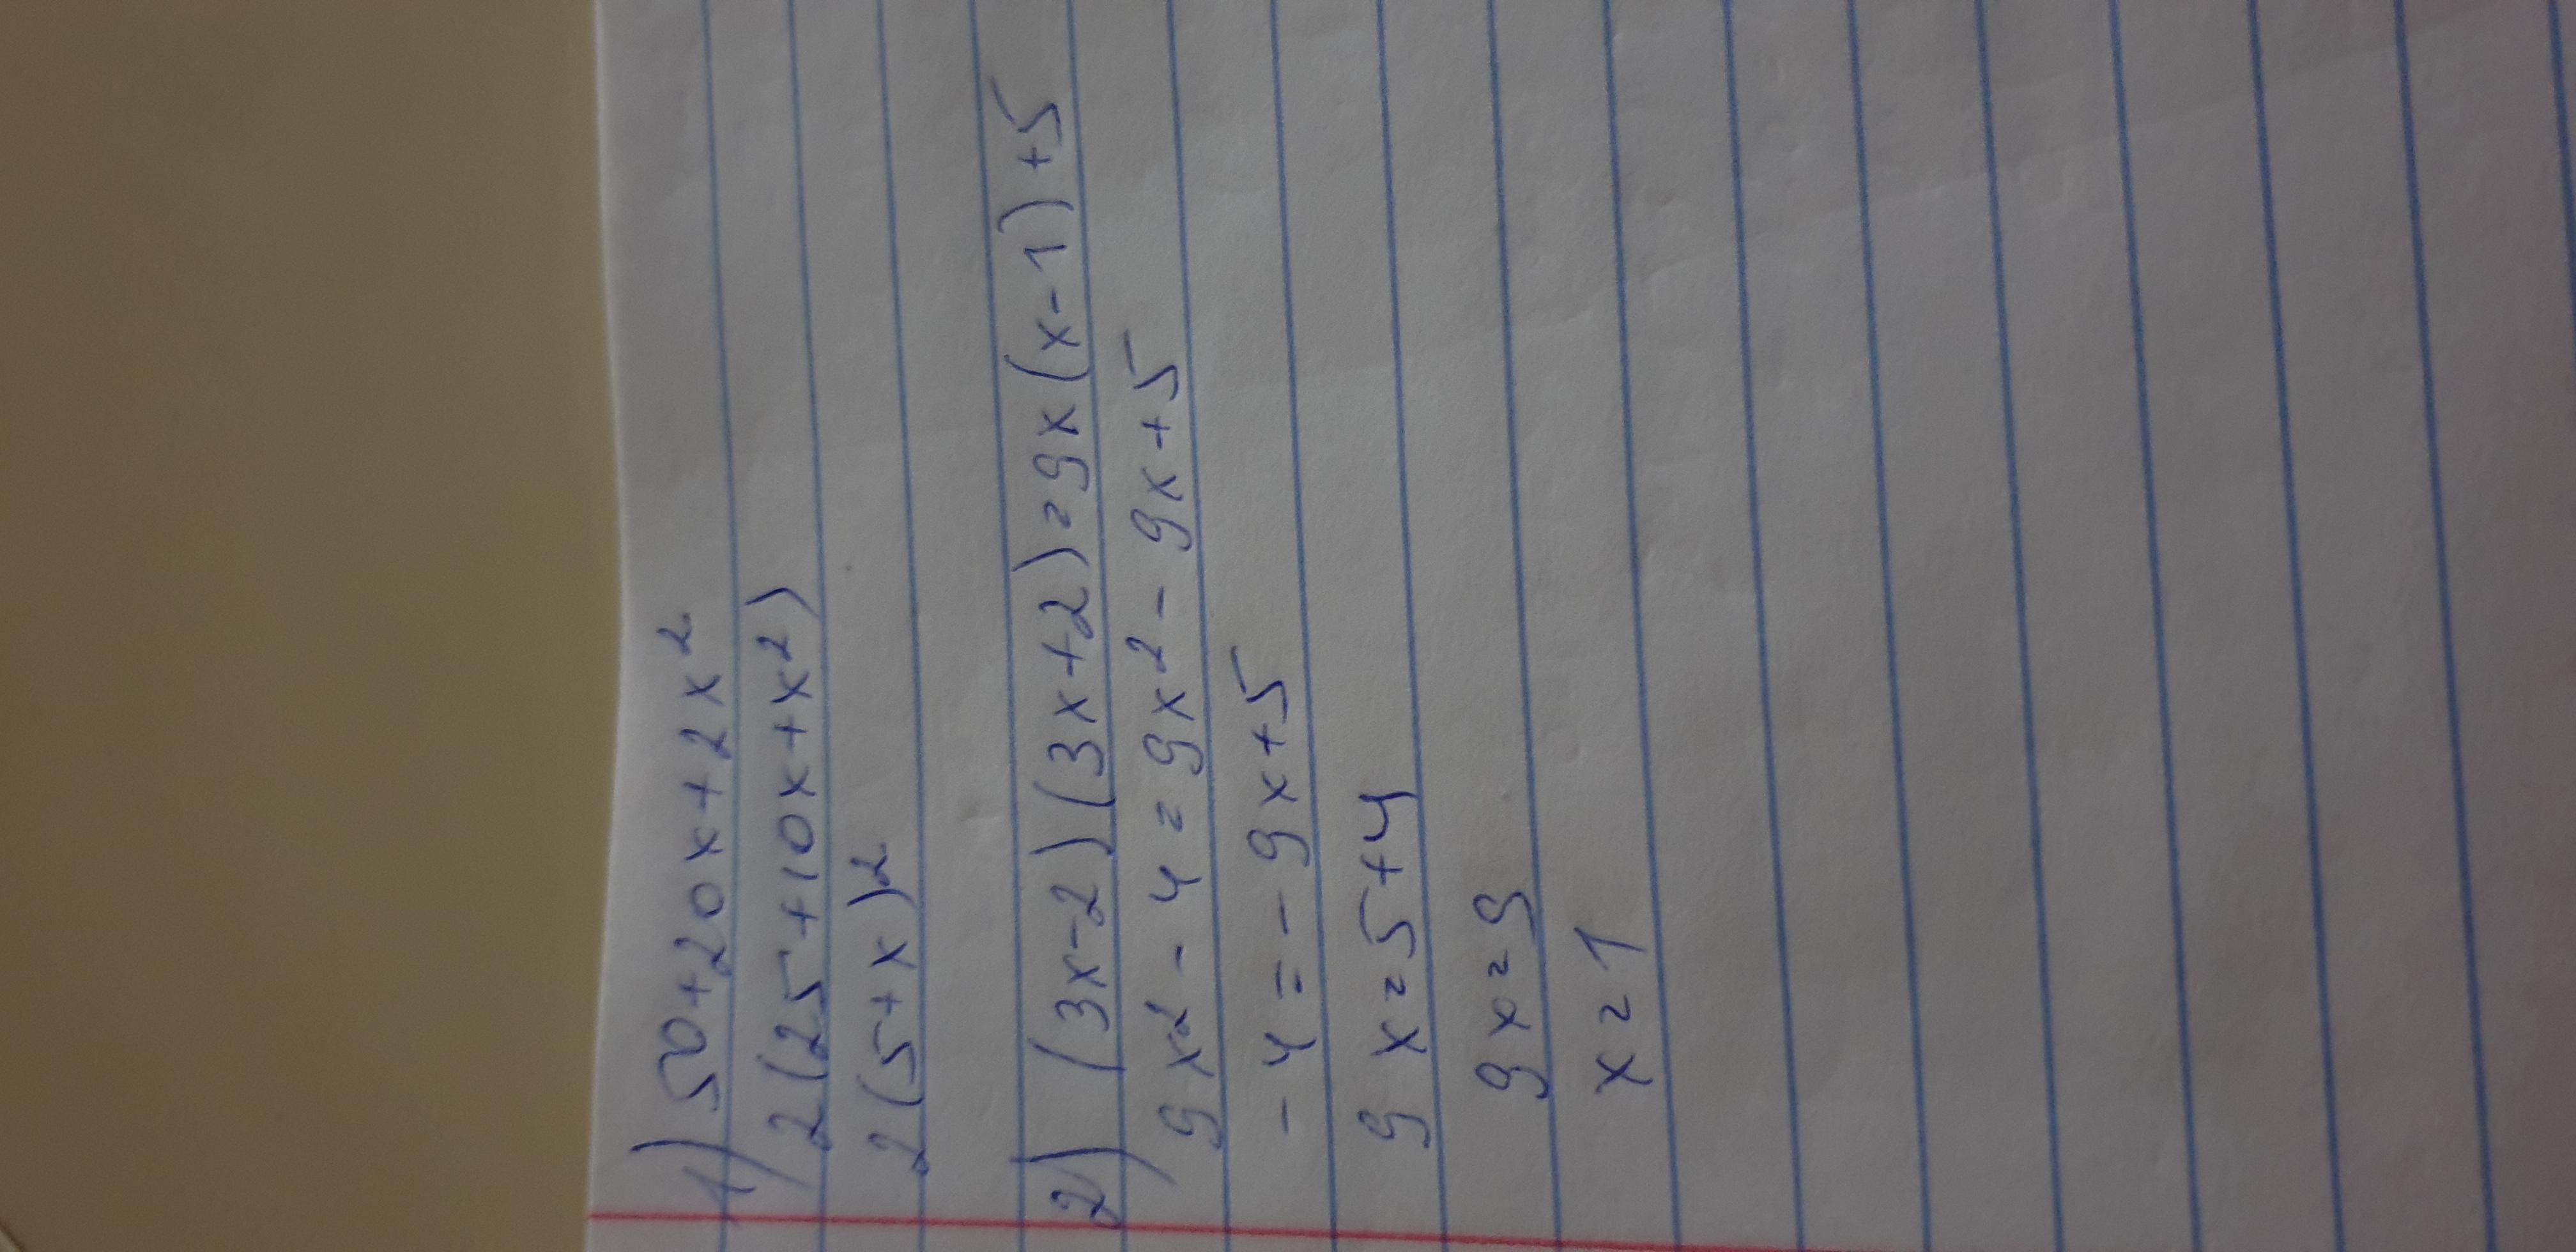 1) 50+20x+2x²
2(25+10x+x²)
2(5+x)²
2) (3x-2)(3x+2)=9x(x-1)+5
9x²-4=9x²-9x+5
-4=-9x+5
9x=5+4
9x=9
x=1